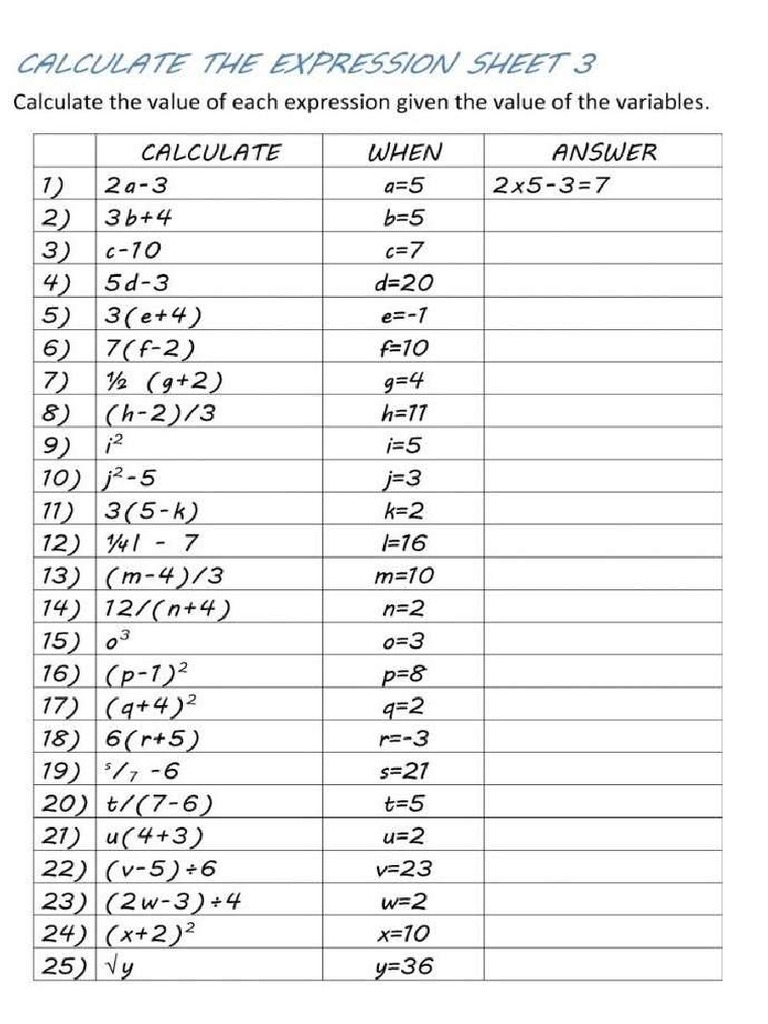 CALCULATE THE EXPRESSION SHEET 3
Calculate the value of each expression given the value of the variables.
CALCULATE WHEN ANSWER
1) 2a-3 a=5 2x5-3=7
2) 3b+4 b=5
3) c-10 c=7
4) 5d-3 d=20
5) 3(e+4) e=-1
6) 7(f-2) f=10
7) ½ (g+2) g=4
8) (h-2)/3 h=11
9) i² i=5
10) j²-5 j=3
11) 3(5-k) k=2
12) ¼l - 7 l=16
13) (m-4)/3 m=10
14) 12/(n+4) n=2
15) o³ o=3
16) (p-1)² p=8
17) (q+4)² q=2
18) 6(r+5) r=-3
19) ˢ/₇ -6 s=21
20) t/(7-6) t=5
21) u(4+3) u=2
22) (v-5)÷6 v=23
23) (2w-3)÷4 w=2
24) (x+2)² x=10
25) √y y=36